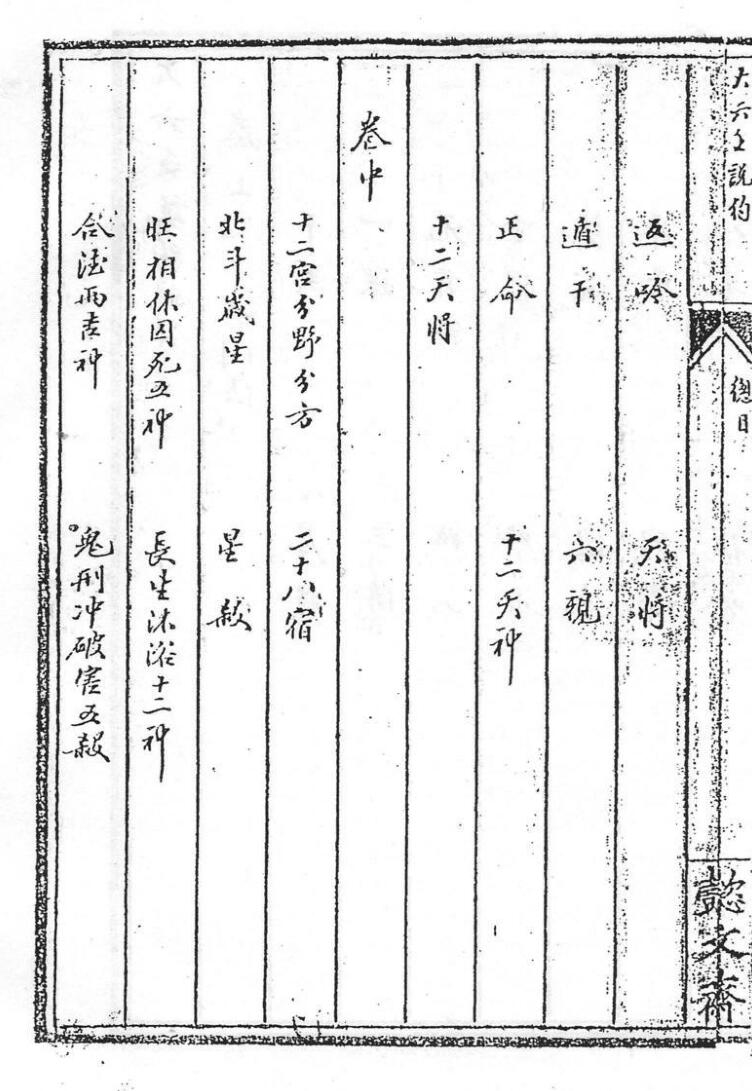 大六壬說約
總目
懿文齋
返吟　天將
遁干　六親
正命　十二天神
十二天將
卷中
十二宮分野分方　二十八宿
北斗歲星　星煞
旺相休囚死五神　長生沐浴十二神
合德兩吉神　鬼刑冲破害五煞